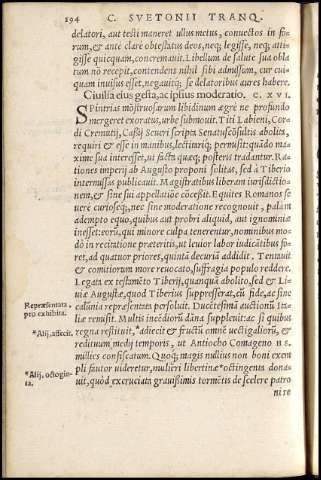 294 C. SVETONII TRANQ.
delatori, aut testi maneret ullus metus, conuectos in fo-
rum, & ante clare obtestatus deos, neq; legisse, neq; atti-
gisse quicquam, concremauit. Libellum de salute sua obla
tum nō recepit, contendens nihil sibi admissum, cur cui-
quam inuisus esset, negauitq; se delatoribus aures habere.
Ciuilia eius gesta, ac ipsius moderatio. C. XVI.
SPintrias mōstruosarum libidinum aegre ne profundo
mergeret exoratus, urbe submouit. Titi Labieni, Cor-
di Cremutij, Cassij Seueri scripta Senatuscōsultis abolita,
requiri & esse in manibus, lecturiq; permisit: quādo ma-
xime sua interesset, ut facta quaeq; posteris tradantur. Ra-
tiones imperij ab Augusto proponi solitas, sed à Tiberio
intermissas publicauit. Magistratibus liberam iurisdictio-
nem, & sine sui appellatiōe cōcessit. Equites Romanos se
uerè curioseq;, nec sine moderatione recognouit, palam
adempto equo, quibus aut probri aliquid, aut ignominiae
inesset: eorū, qui minore culpa tenerentur, nominibus mo-
dò in recitatione praeteritis, ut leuior labor iudicātibus fo-
ret, ad quatuor priores, quintā decuriā addidit. Tentauit
& comitiorum more reuocato, suffragia populo reddere.
Legata ex testamēto Tiberij, quanquā abolito, sed & Li-
uiae Augustae, quod Tiberius suppresserat, cū fide, ac sine
Repraesentata
pro exhibita.
calūnia repraesentata persoluit. Ducētesimā auctionū Ita-
liae remisit. Multis incēdiorū dāna suppleuit: ac si quibus
*Alij, affecit.
regna restituit, *adiecit & fructū omnē uectigaliorū, &
redituum medij temporis, ut Antiocho Comageno H S.
millies confiscatum. Quoq; magis nullius non boni exem
*Alij, octogin-
ta.
pli fautor uideretur, mulieri libertinae *octingenta dona-
uit, quòd excruciata grauissimis tormētis de scelere patro
ni re